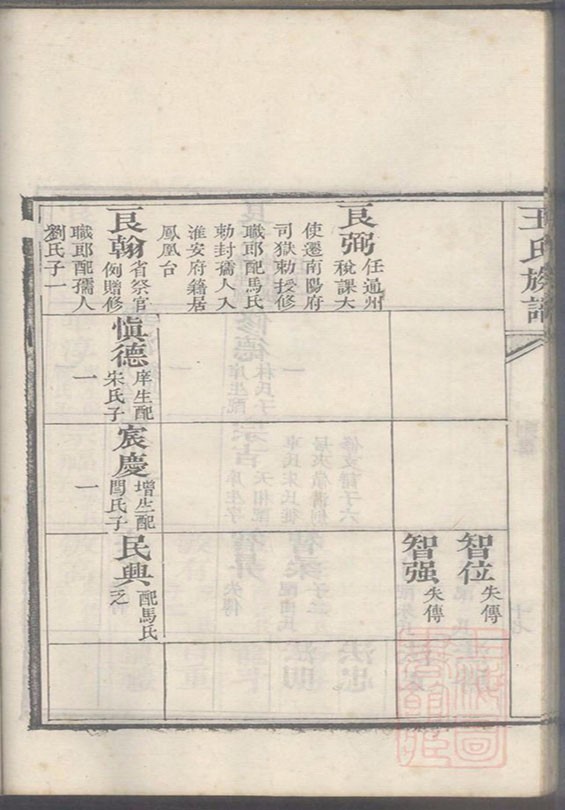 王氏族譜
良弼
任通州
稅課大
使遷南陽府
司獄勅授修
職郎配馬氏
勅封孺人入
淮安府籍居
鳳凰台
良翰
省祭官
例贈修
職郎配孺人
劉氏子一
慎德
庠生配
朱氏子
一
宸慶
增生配
閻氏子
一
智位
失傳
智强
失傳
民興
配馬氏
乏